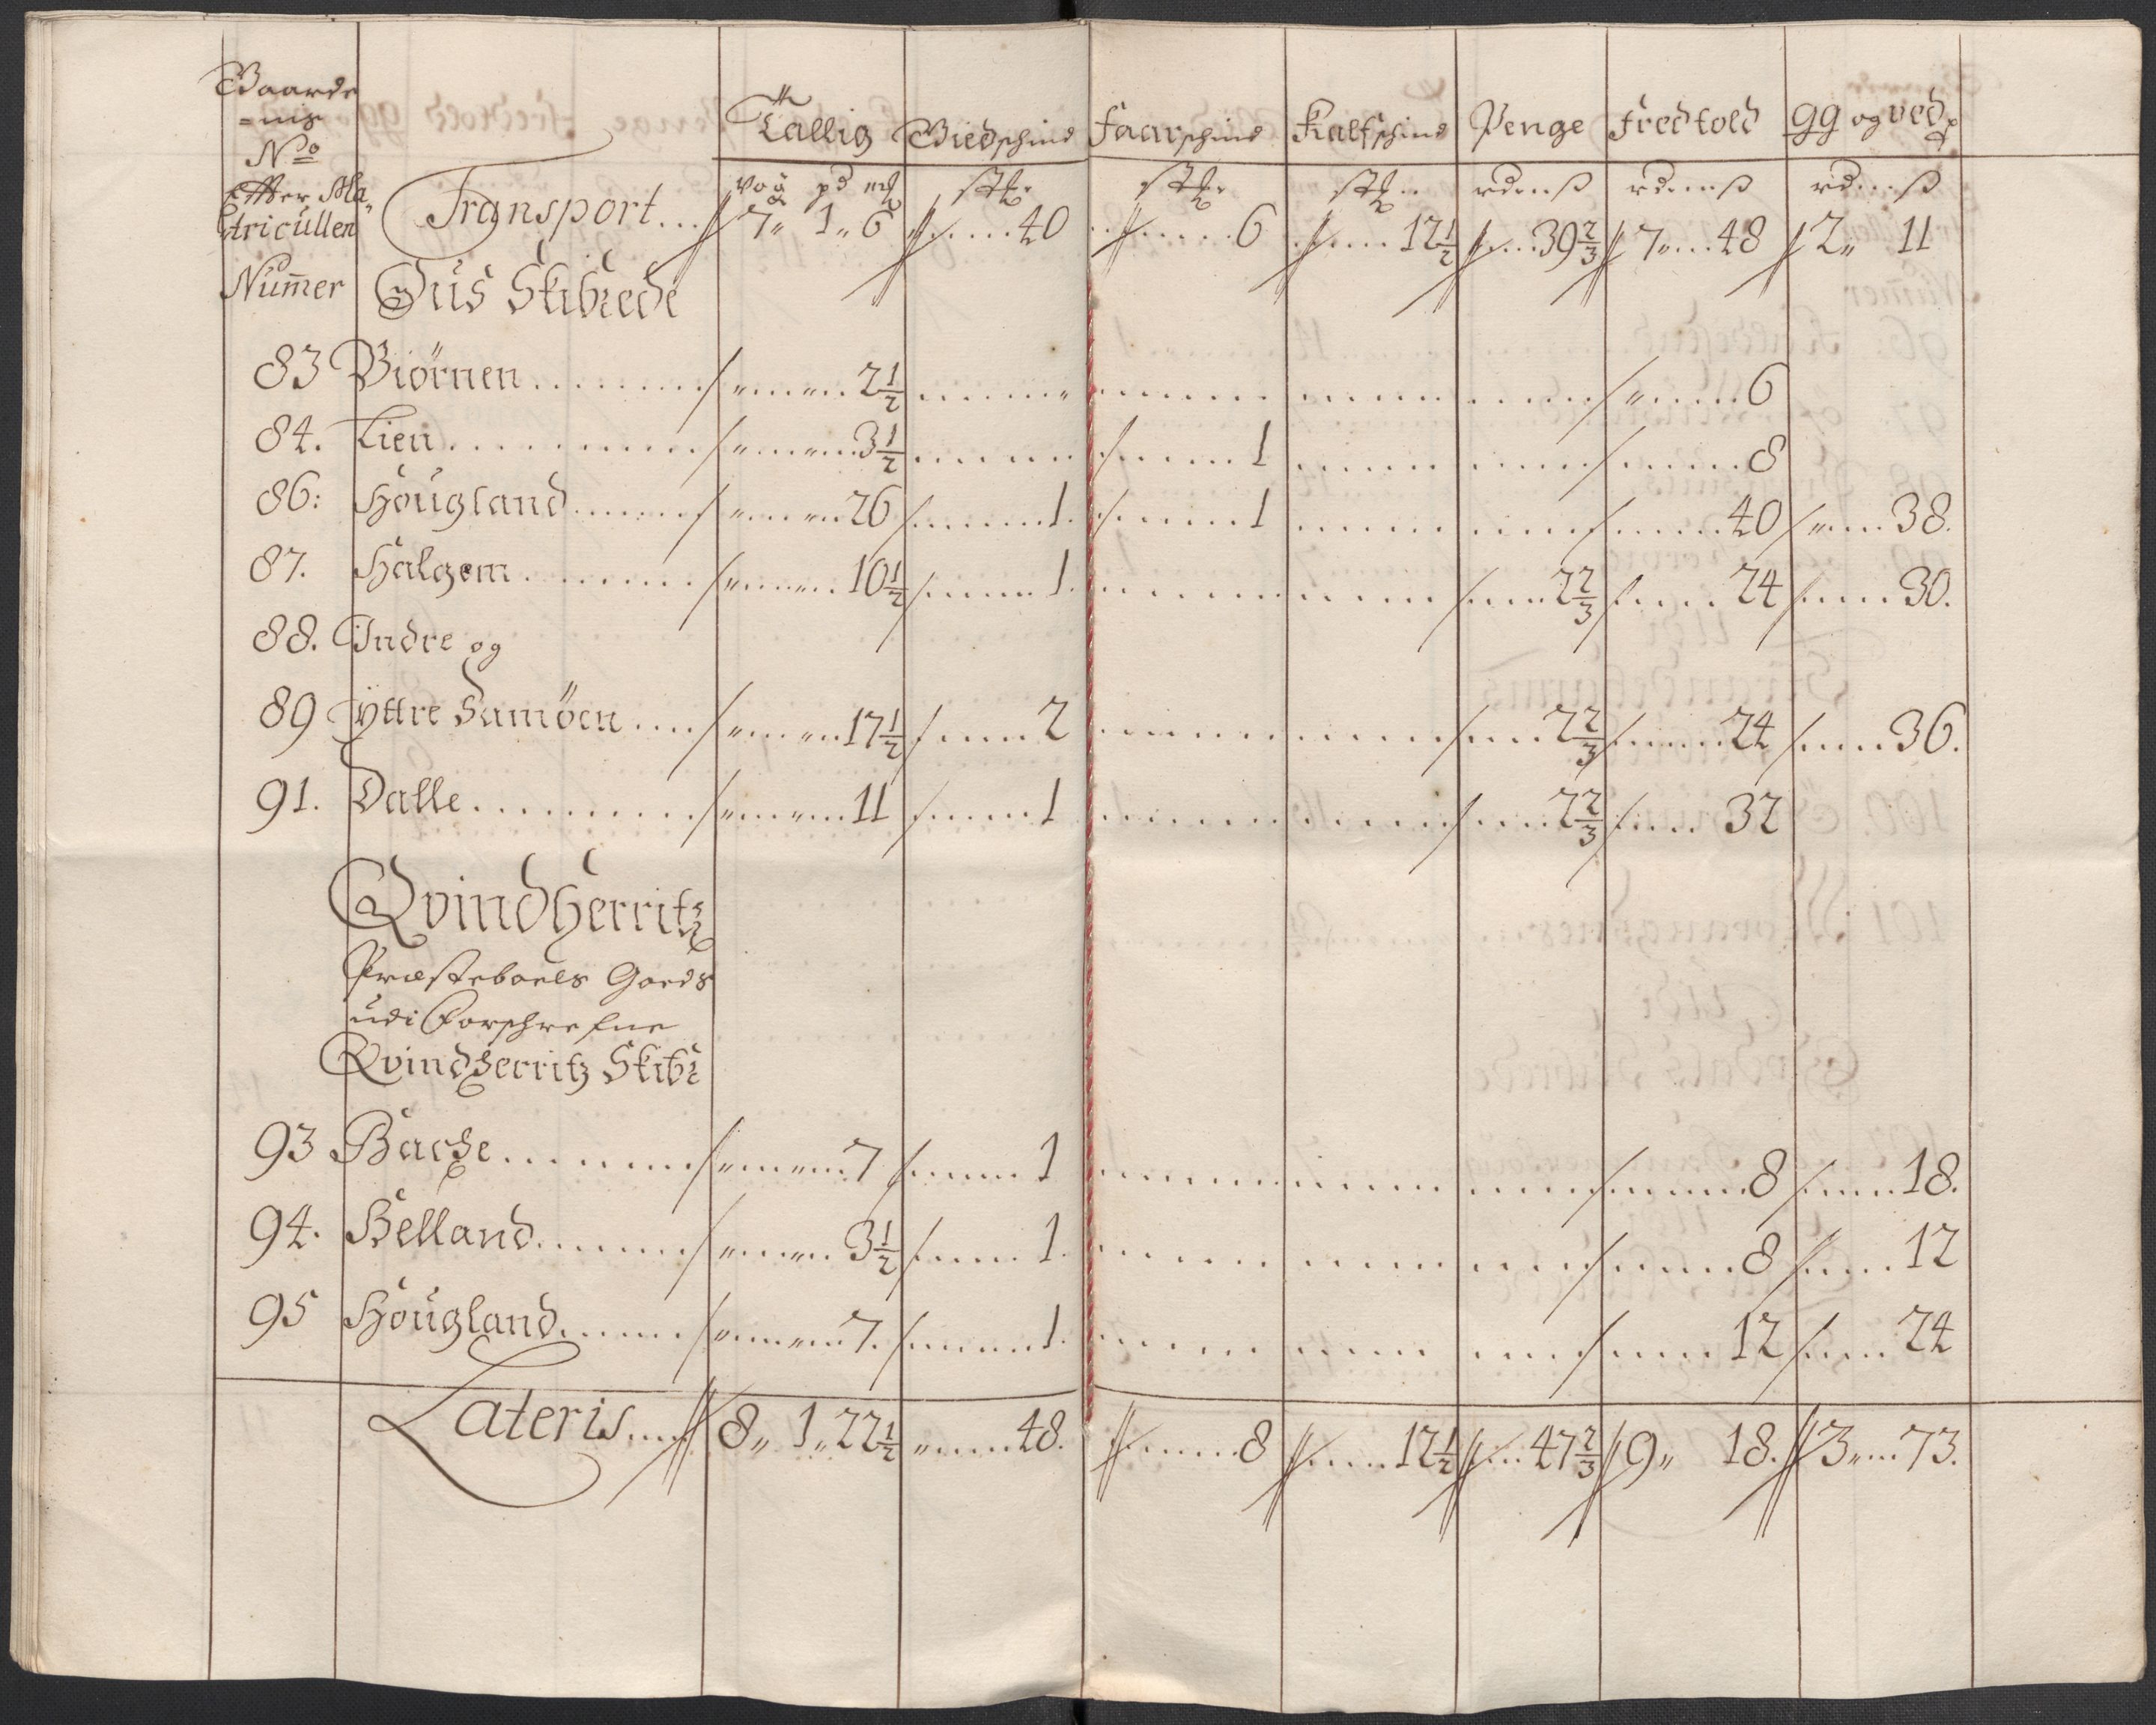 Gaarde
=niß
No
Effter Ma„
tricullen
Nummer
Tallig Giedschind Faarschind Kalfschind Penge Fredtold gg og ved
vog pd mk stk. stk. stk. rd ß rd ß rd ß
Transport... 7„ 1„ 6 40 6 12½ 39⅔ 7„ 48 2„ 11
Ous Skibrede
83 Biörnen 2½ 6
84. Lien 3½ 1 8
86: Höugland 26 1. 1 40 38.
87. Halgem 10½ 1. 2⅔ 24 30.
88. Indre og
89 yttre Samöen 17½ 2 2⅔ 24 36.
91. Dalle 11 1 2⅔ 32
Qvindherritz
Præsteboels Goeds
udi Forschrefne
Qvindherritz Skibr
93 Backe 7 1 8 18.
94. Helland 3½ 1. 8 12
95 Höugland 7. 1. 12 24
Lateris 8„ 1„ 22½ 48. 8 12½ 47⅔ 9„ 18. 3„ 73.